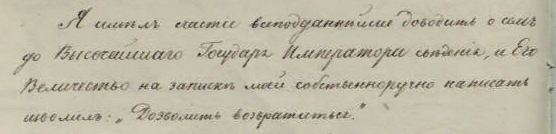 Я имѣлъ счастіе всеподданнѣйше доводить о семъ
до Высочайшаго Государя Императора свѣденія, и Его
Величество на запискѣ моей собственноручно написать
изволилъ: „Дозволить возвратиться."